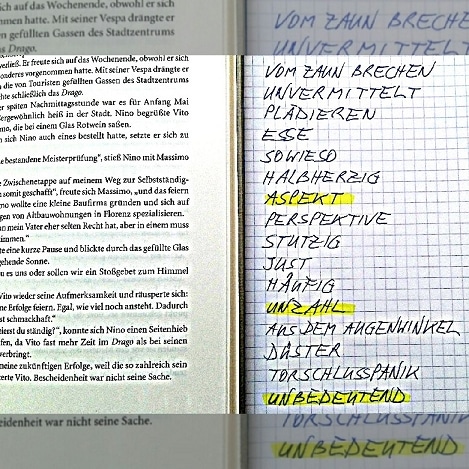 sich auf das Wochenende, obwohl er sich
. Mit seiner Vespa drängte er
gefüllten Gassen des Stadtzentrums
Drago.
Er freute sich auf das Wochenende, obwohl er sich
vorgenommen hatte. Mit seiner Vespa drängte er
die von Touristen gefüllten Gassen des Stadtzentrums
schließlich das Drago.
später Nachmittagsstunde war es für Anfang Mai
heiß in der Stadt. Nino begrüßte Vito
die bei einem Glas Rotwein saßen.
sich Nino auch eines bestellt hatte, setzte er sich zu
bestandene Meisterprüfung", stieß Nino mit Massimo
Zwischenetappe auf meinem Weg zur Selbständig-
somit geschafft", freute sich Massimo, „und das feiern
wollte eine kleine Baufirma gründen und sich auf
von Altbauwohnungen in Florenz spezialisieren.
mein Vater eher selten Recht hat, aber in einem muss
eine kurze Pause und blickte durch das gefüllte Glas
gehende Sonne.
es uns oder sollen wir ein Stoßgebet zum Himmel
Vito wieder seine Aufmerksamkeit und räusperte sich:
Erfolge feiern. Egal, wie viel noch ansteht. Dadurch
schmackhaft."
du ständig?", konnte sich Nino einen Seitenhieb
da Vito fast mehr Zeit im Drago als bei seinen
verbringt.
meine zukünftigen Erfolge, weil die so zahlreich sein
Vito. Bescheidenheit war nicht seine Sache.
war nicht seine Sache.
VOM ZAUN BRECHE
UNVERMITTELT
VOM ZAUN BRECHEN
UNVERMITTELT
PLÄDIEREN
ESSE
SOWIESO
HALBHERZIG
ASPEKT
PERSPEKTIVE
STUTZIG
JUST
HÄUFIG
UNZAHL
AUS DEM AUGENWINKEL
DÜSTER
TORSCHLUSSPANIK
UNBEDEUTEND
TORSCHLUSSPANIK
UNBEDEUTEND